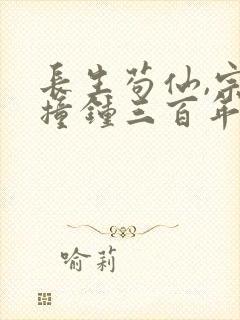 長生茍仙,宗
撞鍾三百年
喻莉